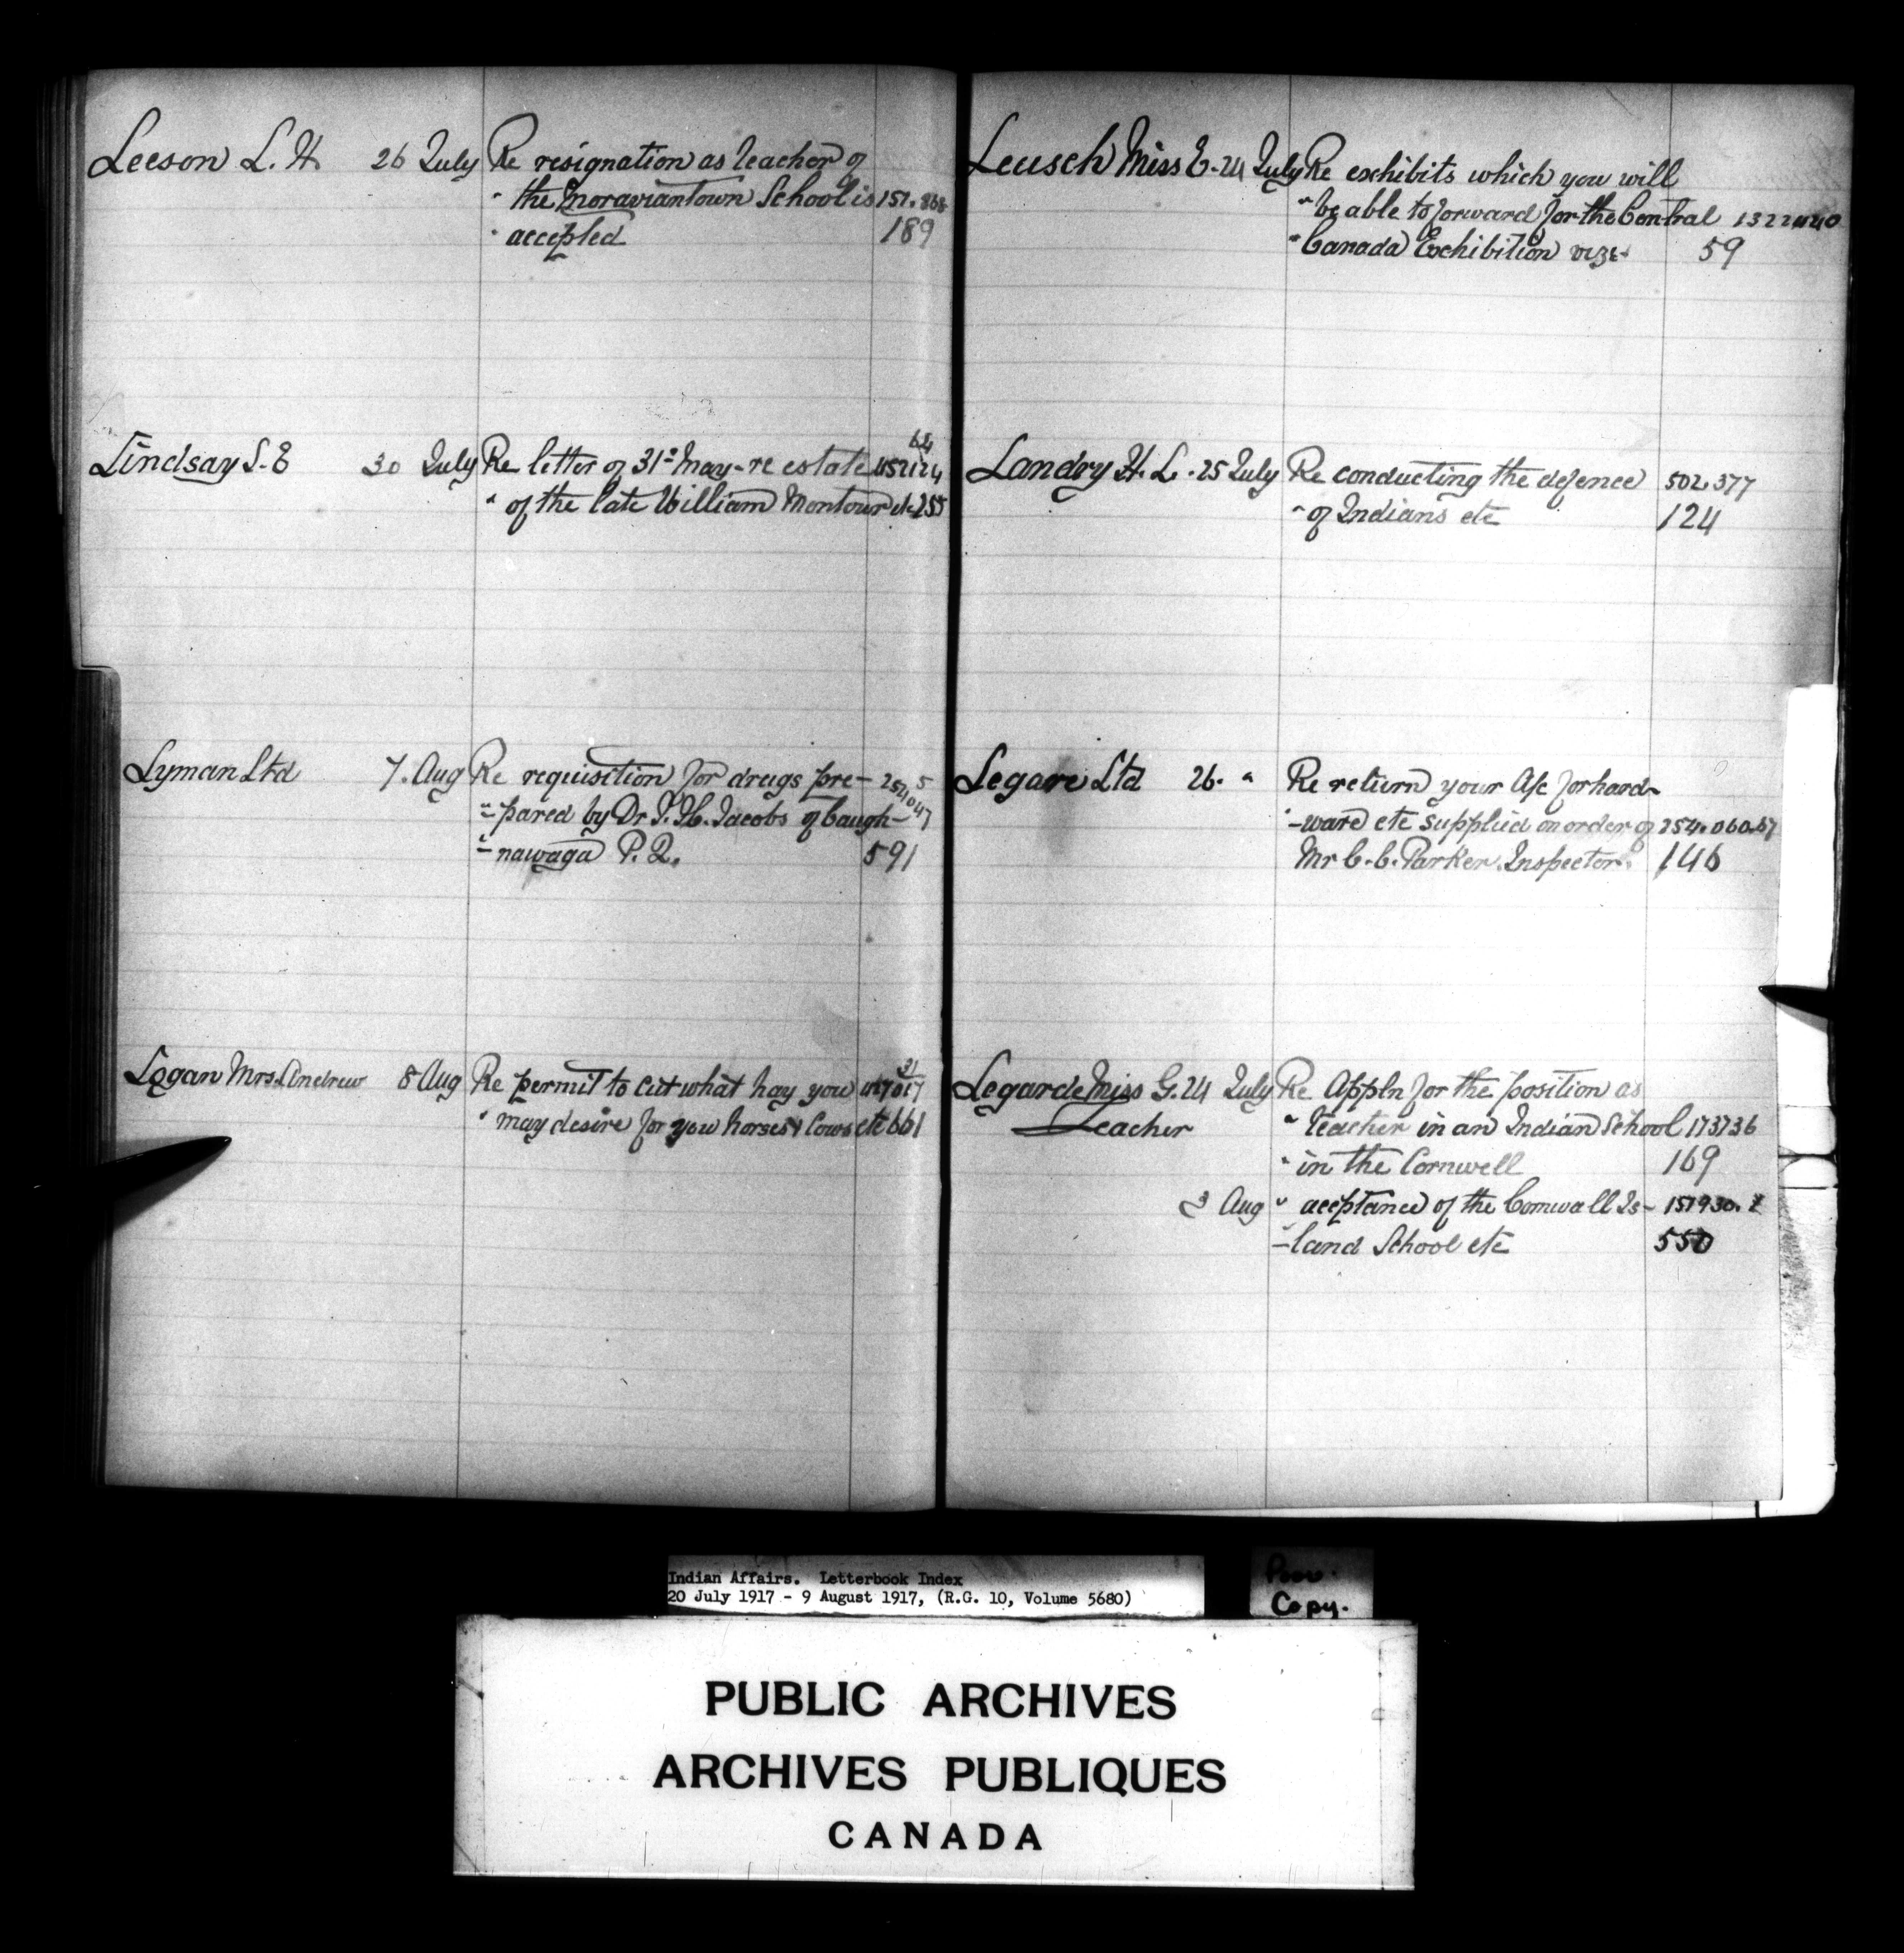 Leeson L. H. 26 July Re resignation as teacher of
" the Moraviantown School is 151.868
" accepted 189
Lindsay S. E 30 July Re letter of 31st May - re estate
" of the late William Montour etc 255
Lyman Ltd 7. Aug Re requisition for drugs pre-
" pared by Dr T. H. Jacobs of Caugh-
" - nawaga P. Q. 591
Logan Mrs. Andrew 8 Aug Re permit to cut what hay you
" may desire for you horses & Cows etc 661
Leusch Miss E. 24 July Re exhibits which you will
" be able to forward for the Central
" Canada Exhibition 59
Landry H. L. 25 July Re conducting the defence 502.377
" of Indians etc 124
Legare Ltd 26. " Re return your A/c for hard-
" -ware etc supplied on order of 254.060.57
Mr C. C. Parker. Inspector. 146
Legarde Miss G. 24 July Re Appln for the position as
Teacher " teacher in an Indian School 173736
" in the Cornwell 169
3 Aug " acceptance of the Cornwall Is-
-land School etc 550
Indian Affairs. Letterbook Index
20 July 1917 - 9 August 1917, (R.G. 10, Volume 5680)
Poor.
Copy.
PUBLIC ARCHIVES
ARCHIVES PUBLIQUES
CANADA